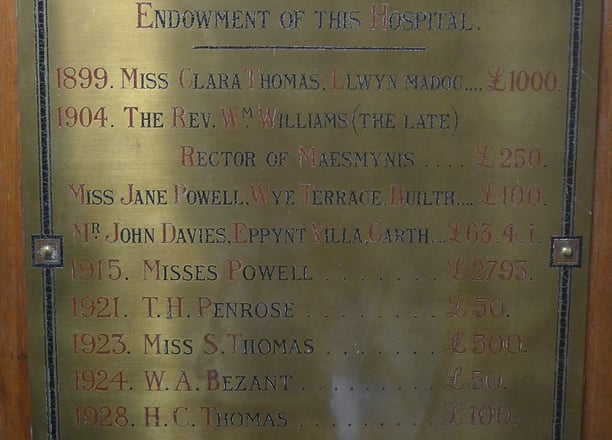 Endowment of this Hospital.
1899. Miss Clara Thomas, Llwyn madoc.... £1000.
1904. The Rev. Wᴹ Williams (the late)
Rector of Maesmynis .... £250.
Miss Jane Powell, Wye Terrace, Builth.... £100.
Mᴿ John Davies, Eppynt Villa, Garth.... £63.4.1.
1915. Misses Powell ........ £2795.
1921. T. H. Penrose ......... £50.
1923. Miss S. Thomas ........ £500.
1924. W. A. Bezant ......... £50.
1928. H. C. Thomas ......... £100.